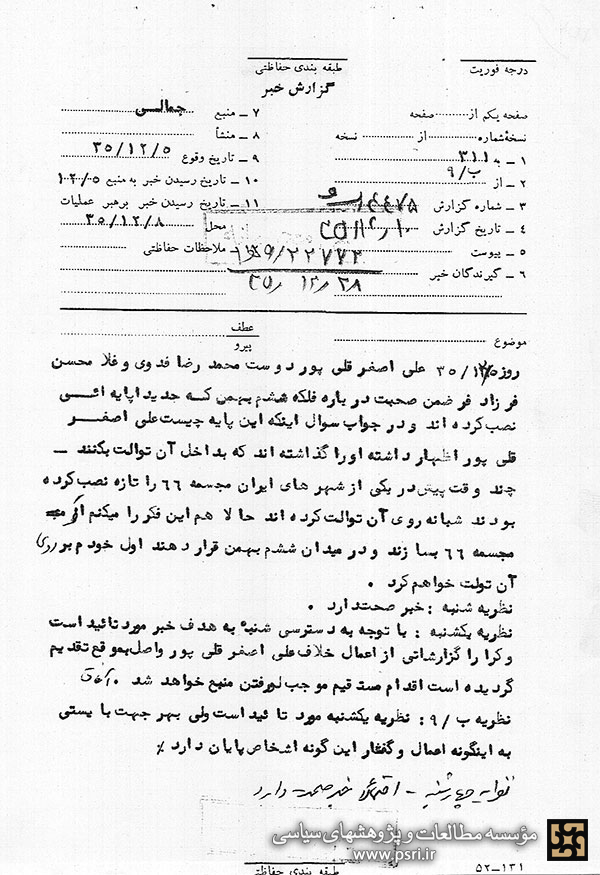 درجه فوریت
طبقه بندی حفاظتی
گزارش خبر
صفحه یکم از صفحه
نسخه شماره از نسخه
۱ ـ به ۳۱۱
۲ ـ از ۹/ب
۳ ـ شماره گزارش
۴ ـ تاریخ گزارش
۵ ـ پیوست
۶ ـ گیرندگان خبر
۷ ـ منبع جمالی
۸ ـ منشأ
۹ ـ تاریخ وقوع ۳۵/۱۲/۵
۱۰ ـ تاریخ رسیدن خبر به منبع ۱۲/۰۵
۱۱ ـ تاریخ رسیدن خبر برهبر عملیات
محل ۳۵/۱۲/۸
ملاحظات حفاظتی
۲۲۷۷۲/۹
۳۵/۱۲/۲۸
موضوع
عطف
پیرو
روز ۳۵/۱۲/۵ علی اصغر قلی پور دوست محمد رضا فدوی و غلا محسن
فرزاد فر ضمن صحبت در باره فلکه ششم بهمن که جدیدا پایه ائی
نصب کرده اند و در جواب سوال اینکه این پایه چیست علی اصغر
قلی پور اظهار داشته اورا گذاشته اند که بداخل آن توالت بکنند ـ
چند وقت پیش در یکی از شهر های ایران مجسمه ۶۶ را تازه نصب کرده
بودند شبانه روی آن توالت کرده اند حالا هم این فکر را میکنم اگر
مجسمه ۶۶ بسا زند و در میدان ششم بهمن قرار دهند اول خودم بر روی
آن تولت خواهم کرد .
نظریه شنبه : خبر صحتدارد .
نظریه یکشنبه : با توجه به دسترسی شنبه به هدف خبر مورد تائید است
و کرا را گزارشاتی از اعمال خلاف علی اصغر قلی پور واصل بموقع تقدیم
گردیده است اقدام مستقیم موجب لو رفتن منبع خواهد شد .
نظریه ۹/ب : نظریه یکشنبه مورد تا ئید است ولی بهر جهت با یستی
به اینگونه اعمال و گفتار این گونه اشخاص پایان داد ٪
نظریه چهارشنبه ـ خبر صحت دارد
مؤسسه مطالعات و پژوهشهای سیاسی
www.psri.ir
طبقه بندی حفاظتی
۵۲-۱۳۱